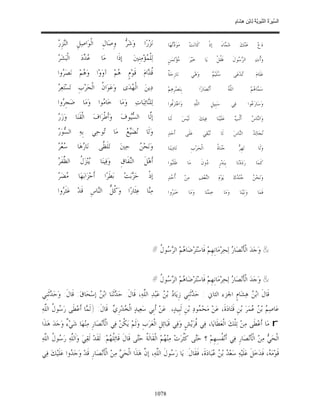 السِّيرَةُ النَّبَوِيَّةُ لِابْنِ هِشَامٍ
دَعْ عَنْكَ شَمَّاءَ إذْ كَانَتْ مَوَدَّتُهَا نَزْرًا وَشَرُّ وِصَالِ الْوَاصِلِ النَّزِرُ
وَأْتِ الرَّسُولَ فَقُلْ يَا خَيْرَ مُؤْتَمَنٍ لِلْمُؤْمِنِينَ إذَا مَا عُدِّدَ الْبَشَرُ
عَلَامَ تُدْعَى سُلَيْمٌ وَهْيَ نَازِحَةٌ قُدَّامَ قَوْمٍ هُمْ آوَوْا وَهُمْ نَصَرُوا
سَمَّاهُمْ اللَّهُ أَنْصَارًا بِنَصْرِهِمْ دِينَ الْهُدَى وَعَوَانُ الْحَرْبِ تَسْتَعِرُ
وَسَارَعُوا فِي سَبِيلِ اللَّهِ وَاعْتَرَفُوا لِلنَّائِبَاتِ وَمَا خَامُوا وَمَا ضَجِرُوا
وَالنَّاسُ أَلْبٌ عَلَيْنَا فِيكَ لَيْسَ لَنَا إلَّا السُّيُوفَ وَأَطْرَافَ الْقَنَا وَزَرُ
نُجَالِدُ النَّاسَ لَا نُبْقِي عَلَى أَحَدٍ وَلَا نُضَيِّعُ مَا تُوحِي بِهِ السُّوَرُ
وَلَا تَهِرُّ جُنَاةُ الْحَرْبِ نَادِيَنَا وَنَحْنُ حِينَ تَلَظَّى نَارُهَا سُعُرُ
كَمَا رَدَدْنَا بِبَدْرٍ دُونَ مَا طَلَبُوا أَهْلَ النِّفَاقِ وَفِينَا يُنْزَلُ الظَّفَرُ
وَنَحْنُ جُنْدُكَ يَوْمَ النَّعْفِ مِنْ أُحُدٍ إذْ حَزَّبَتْ بَطَرًا أَحْزَابَهَا مُضَرُ
فَمَا وَنَيْنَا وَمَا خِمْنَا وَمَا خَبَرُوا مِنَّا عِثَارًا وَكُلُّ النَّاسِ قَدْ عَثَرُوا
وَجَدَ الْأَنْصَارُ لِحِرْمَانِهِمْ فَاسْتَرْضَاهُمْ الرَّسُولُ
وَجَدَ الْأَنْصَارُ لِحِرْمَانِهِمْ فَاسْتَرْضَاهُمْ الرَّسُولُ
قَالَ ابْنُ هِشَامٍ الجزء الثاني حَدَّثَنِي زِيَادُ بْنُ عَبْدِ اللَّهِ، قَالَ حَدَّثَنَا ابْنُ إسْحَاقَ قَالَ وَحَدَّثَنِي
عَاصِمُ بْنُ عُمَرَ بْنِ قَتَادَةَ، عَنْ مَحْمُودِ بْنِ لَبِيدٍ، عَنْ أَبِي سَعِيدٍ الْخُدْرِيِّ قَالَ [لَمَّا أَعْطَى رَسُولُ اللَّهِ
مَا أَعْطَى مِنْ تِلْكَ الْعَطَايَا، فِي قُرَيْشٍ وَفِي قَبَائِلِ الْعَرَبِ وَلَمْ يَكُنْ فِي الْأَنْصَارِ مِنْهَا شَيْءٌ وَجَدَ هَذَا
الْحَيُّ مِنْ الْأَنْصَارِ فِي أَنْفُسِهِمْ ؟ حَتَّى كَثُرَتْ مِنْهُمْ الْقَالَةُ حَتَّى قَالَ قَائِلُهُمْ لَقَدْ لَقِيَ وَاَللَّهِ رَسُولُ اللَّهِ
قَوْمَهُ، فَدَخَلَ عَلَيْهِ سَعْدُ بْنُ عُبَادَةَ، فَقَالَ يَا رَسُولَ اللَّهِ، إنَّ هَذَا الْحَيَّ مِنْ الْأَنْصَارِ قَدْ وَجَدُوا عَلَيْكَ فِي
1078